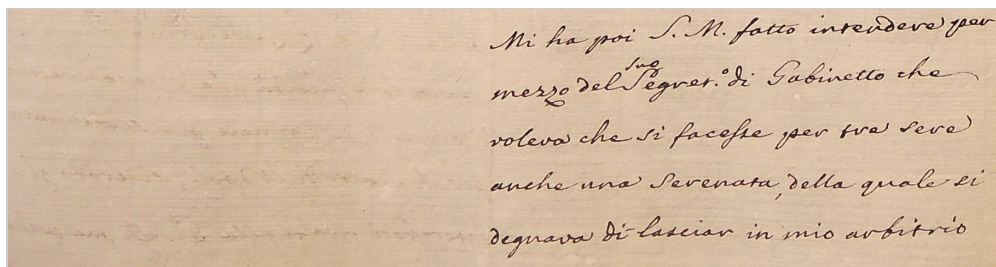 Mi ha poi S. M. fatto intendere per
mezzo del suo Segret.º di Gabinetto che
voleva che si facesse per tre sere
anche una Serenata, della quale si
degnava di lasciar in mio arbitrio